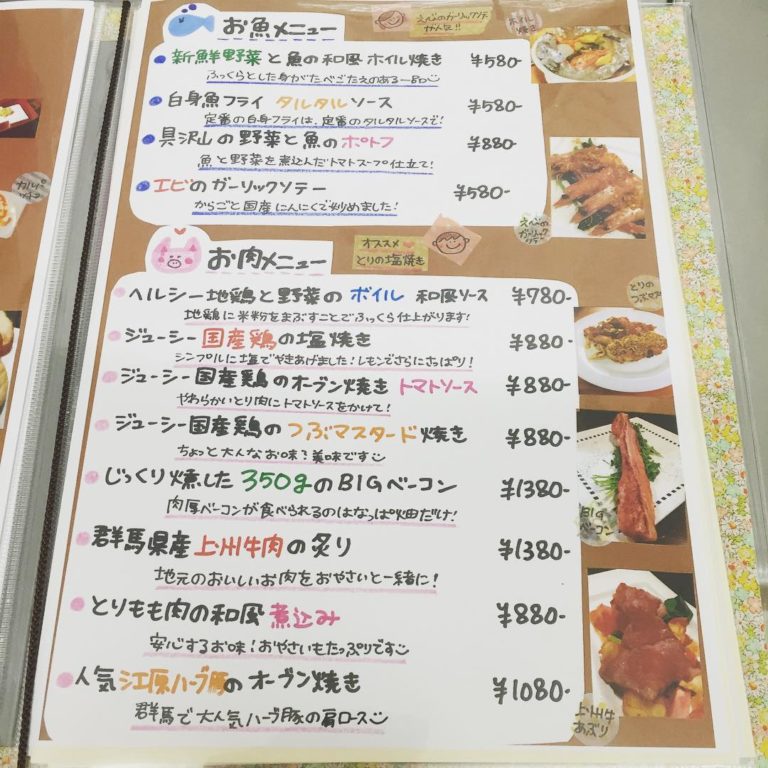 お魚メニュー
えびのガーリックソテー
が人気!!
ホイル
焼き
新鮮野菜と魚の和風ホイル焼き ¥580-
ふっくらとした身がたべごたえのある一品
白身魚フライ タルタルソース ¥580-
定番の白身フライは、定番のタルタルソースで!
具沢山の野菜と魚のポトフ ¥880-
魚と野菜を煮込んだトマトスープ仕立て!
エビのガーリックソテー ¥580-
からごと国産にんにくで炒めました!
えびの
ガーリック
お肉メニュー
オススメ
とりの塩焼き
とりの
つぶマスタ
ヘルシー地鶏と野菜のボイル 和風ソース ¥780-
地鶏に米粉をまぶすことでふっくら仕上がります!
ジューシー国産鶏の塩焼き ¥880-
シンプルに塩でやきあげました!レモンでさらにさっぱり!
ジューシー国産鶏のオーブン焼き トマトソース ¥880-
やわらかいとり肉にトマトソースをかけて!
ジューシー国産鶏のつぶマスタード焼き ¥880-
ちょっと大人なお味!美味です
じっくり燻した350gのBIGベーコン ¥1380-
肉厚ベーコンが食べられるのはなっぱ畑だけ!
BIG
ベーコン
群馬県産上州牛肉の炙り ¥1380-
地元のおいしいお肉をおやさいと一緒に!
とりもも肉の和風煮込み ¥880-
安心するお味!おやさいもたっぷりです
人気江原ハーブ豚のオーブン焼き ¥1080-
群馬で大人気ハーブ豚の肩ロース
上州牛
あぶり